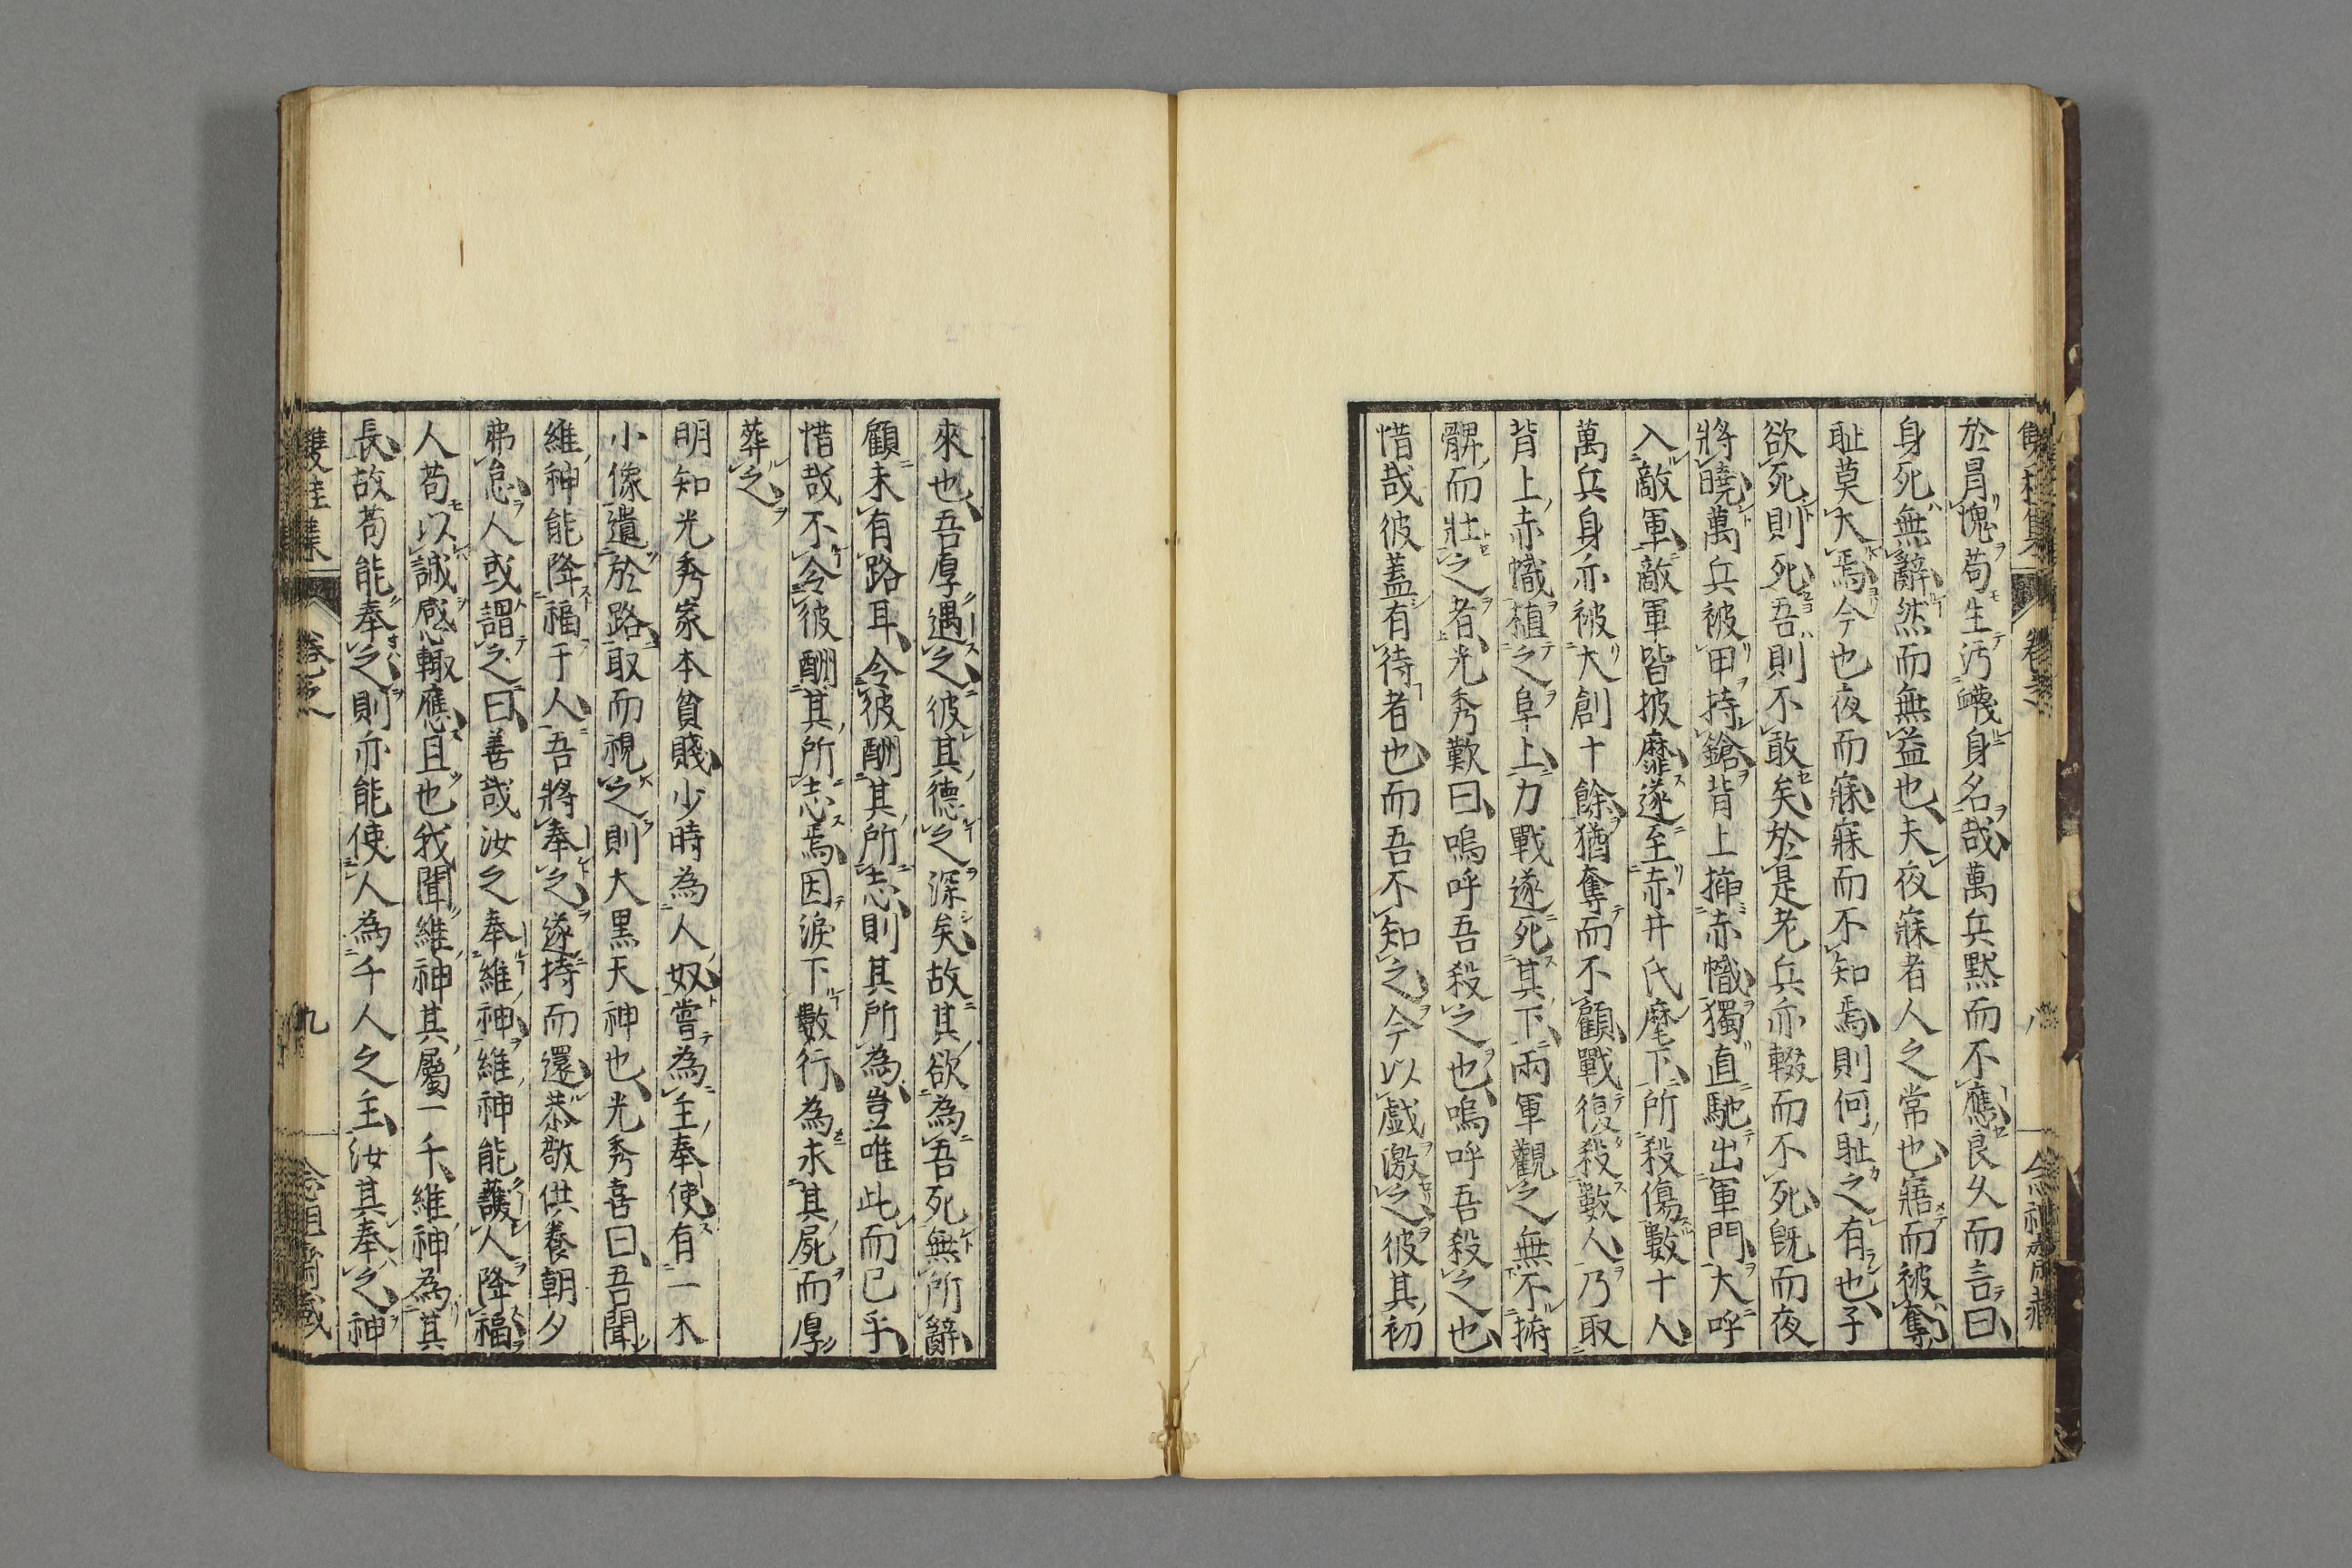 於胥愧苟生汚衊身名哉萬兵黙而不應良久而言曰
身死無辭然而無益也夫夜寐者人之常也寤而被奪
耻莫大焉今也夜而寐寐而不知焉則何耻之有也子
欲死則死吾則不敢矣於是老兵亦輟而不死既而夜
將曉萬兵被甲持鎗背上揷赤幟獨直馳出軍門大呼
入敵軍敵軍皆披靡遂至赤井氏麾下所殺傷數十人
萬兵身亦被大創十餘猶奪而不顧戰復殺數人乃取
背上赤幟植之阜上力戰遂死其下兩軍觀之無不拊
髀而壯之者光秀歎曰嗚呼吾殺之也嗚呼吾殺之也
惜哉彼蓋有待者也而吾不知之今以戲激之彼其初
來也吾厚遇之彼其德之深矣故其欲為吾死無所辭
顧未有路耳令彼酬其所志則其所為豈唯此而已乎
惜哉不令彼酬其所志焉因淚下數行為求其屍而厚
葬之
明知光秀家本貧賤少時為人奴嘗為主奉使有一木
小像遺於路取而視之則大黒天神也光秀喜曰吾聞
維神能降福于人吾將奉之遂持而還恭敬供養朝夕
弗怠人或謂之曰善哉汝之奉維神維神能護人降福
人苟以誠感輙應且也我聞維神其屬一千維神為其
長故苟能奉之則亦能使人為千人之主汝其奉之神
雙桂集
卷之
九